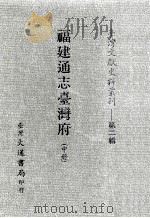 臺灣文獻史料叢刊——第二輯
福建通志臺灣府
(中冊)
臺灣大通書局印行